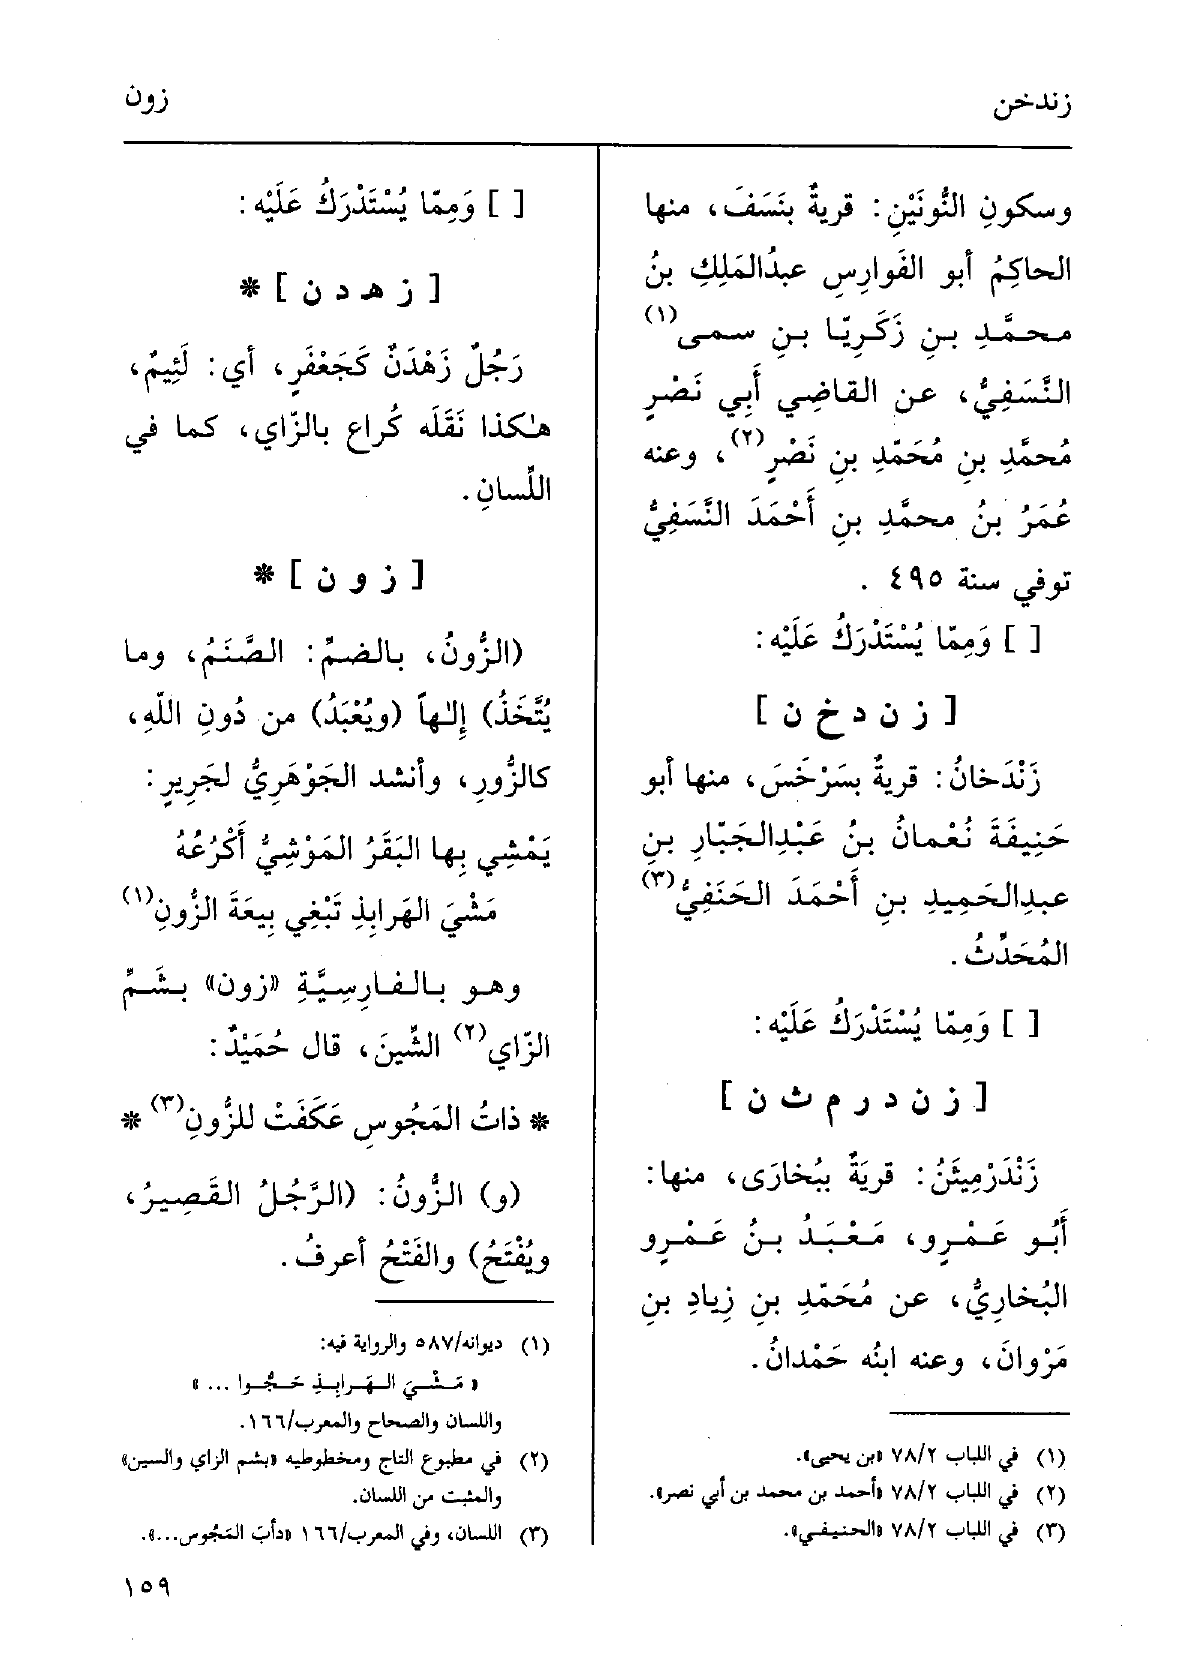 زندخن
زون
وسكونِ النُّونَيْنِ: قريةٌ بنَسَفَ، منها
الحاكِمُ أبو الفَوارِسِ عبدُالمَلِكِ بنُ
محمَّدِ بنِ زَكَرِيّا بنِ سمى(١)
النَّسَفِيُّ، عن القاضِي أَبِي نَصْرٍ
مُحمَّدِ بنِ مُحَمَّدِ بنِ نَصْرٍ(٢)، وعنه
عُمَرُ بنُ محمَّدِ بنِ أَحْمَدَ النَّسَفِيُّ
توفي سنة ٤٩٥ .
[ ] وَمِمّا يُسْتَدْرَكُ عَلَيْه:
[ ز ن د خ ن ]
زَنْدَخانُ: قريةٌ بسَرْخَسَ، منها أبو
حَنِيفَةَ نُعْمانُ بنُ عَبْدِالجَبّارِ بنِ
عبدِالحَمِيدِ بنِ أَحْمَدَ الحَنَفِيُّ(٣)
المُحَدِّثُ.
[ ] وَمِمّا يُسْتَدْرَكُ عَلَيْه:
[ ز ن د ر م ث ن ]
زَنْدَرْمِيثَنُ: قريَةٌ ببُخارَى، منها:
أَبُو عَمْرٍو، مَعْبَدُ بنُ عَمْرٍو
البُخارِيُّ، عن مُحَمّدِ بنِ زِيادِ بنِ
مَرْوانَ، وعنه ابنُه حَمْدانُ.
(١) في اللباب ٧٨/٢ «بن يحيى».
(٢) في اللباب ٧٨/٢ «أحمد بن محمد بن أبي نصر».
(٣) في اللباب ٧٨/٢ «الحنيفي».
[ ] وَمِمّا يُسْتَدْرَكُ عَلَيْه:
[ ز هـ د ن ] *
رَجُلٌ زَهْدَنٌ كَجَعْفَرٍ، أي: لَئِيمٌ،
هٰكذا نَقَلَه كُراع بالزّاي، كما في
اللِّسانِ.
[ ز و ن ] *
(الزُّونُ، بالضمِّ: الصَّنَمُ، وما
يُتَّخَذُ) إِلٰهاً (ويُعْبَدُ) من دُونِ اللّهِ،
كالزُّورِ، وأنشد الجَوْهَرِيُّ لجَرِيرٍ:
يَمْشِي بِها البَقَرُ المَوْشِيُّ أَكْرُعُهُ
مَشْيَ الهَرابِذِ تَبْغِي بِيعَةَ الزُّونِ(١)
وهو بالفارِسِيَّةِ «زون» بشَمِّ
الزّاي(٢) الشِّينَ، قال حُمَيْدٌ:
* ذاتُ المَجُوسِ عَكَفَتْ للزُّونِ(٣) *
(و) الزُّونُ: (الرَّجُلُ القَصِيرُ،
ويُفْتَحُ) والفَتْحُ أعرفُ.
(١) ديوانه/٥٨٧ والرواية فيه:
« مَشْيَ الهَرابِذِ حَجُّوا ... »
واللسان والصحاح والمعرب/١٦٦.
(٢) في مطبوع التاج ومخطوطيه «بشم الزاي والسين»
والمثبت من اللسان.
(٣) اللسان، وفي المعرب/١٦٦ «دأبَ المَجُوسِ...».
١٥٩